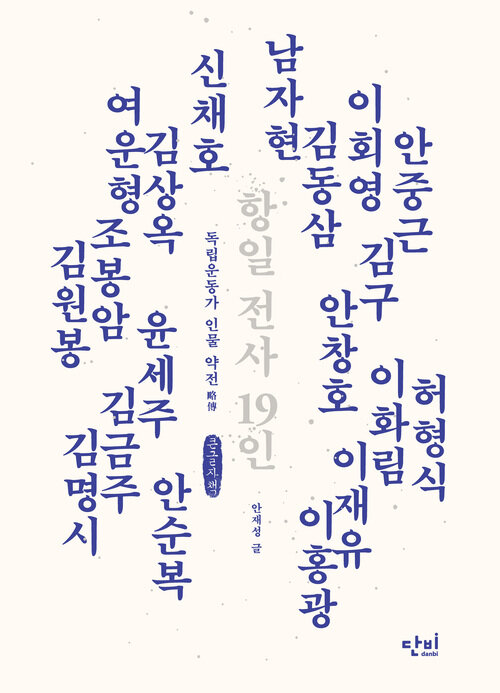 항일 전사 19인
독립운동가 인물 약전 略傳
큰글자책
안재성 글
안중근
이회영
남자현
김동삼
김구
안창호
허형식
이화림
이재유
이홍광
신채호
여운형
김상옥
조봉암
김원봉
윤세주
김금주
김명시
안순복
단비
danbi